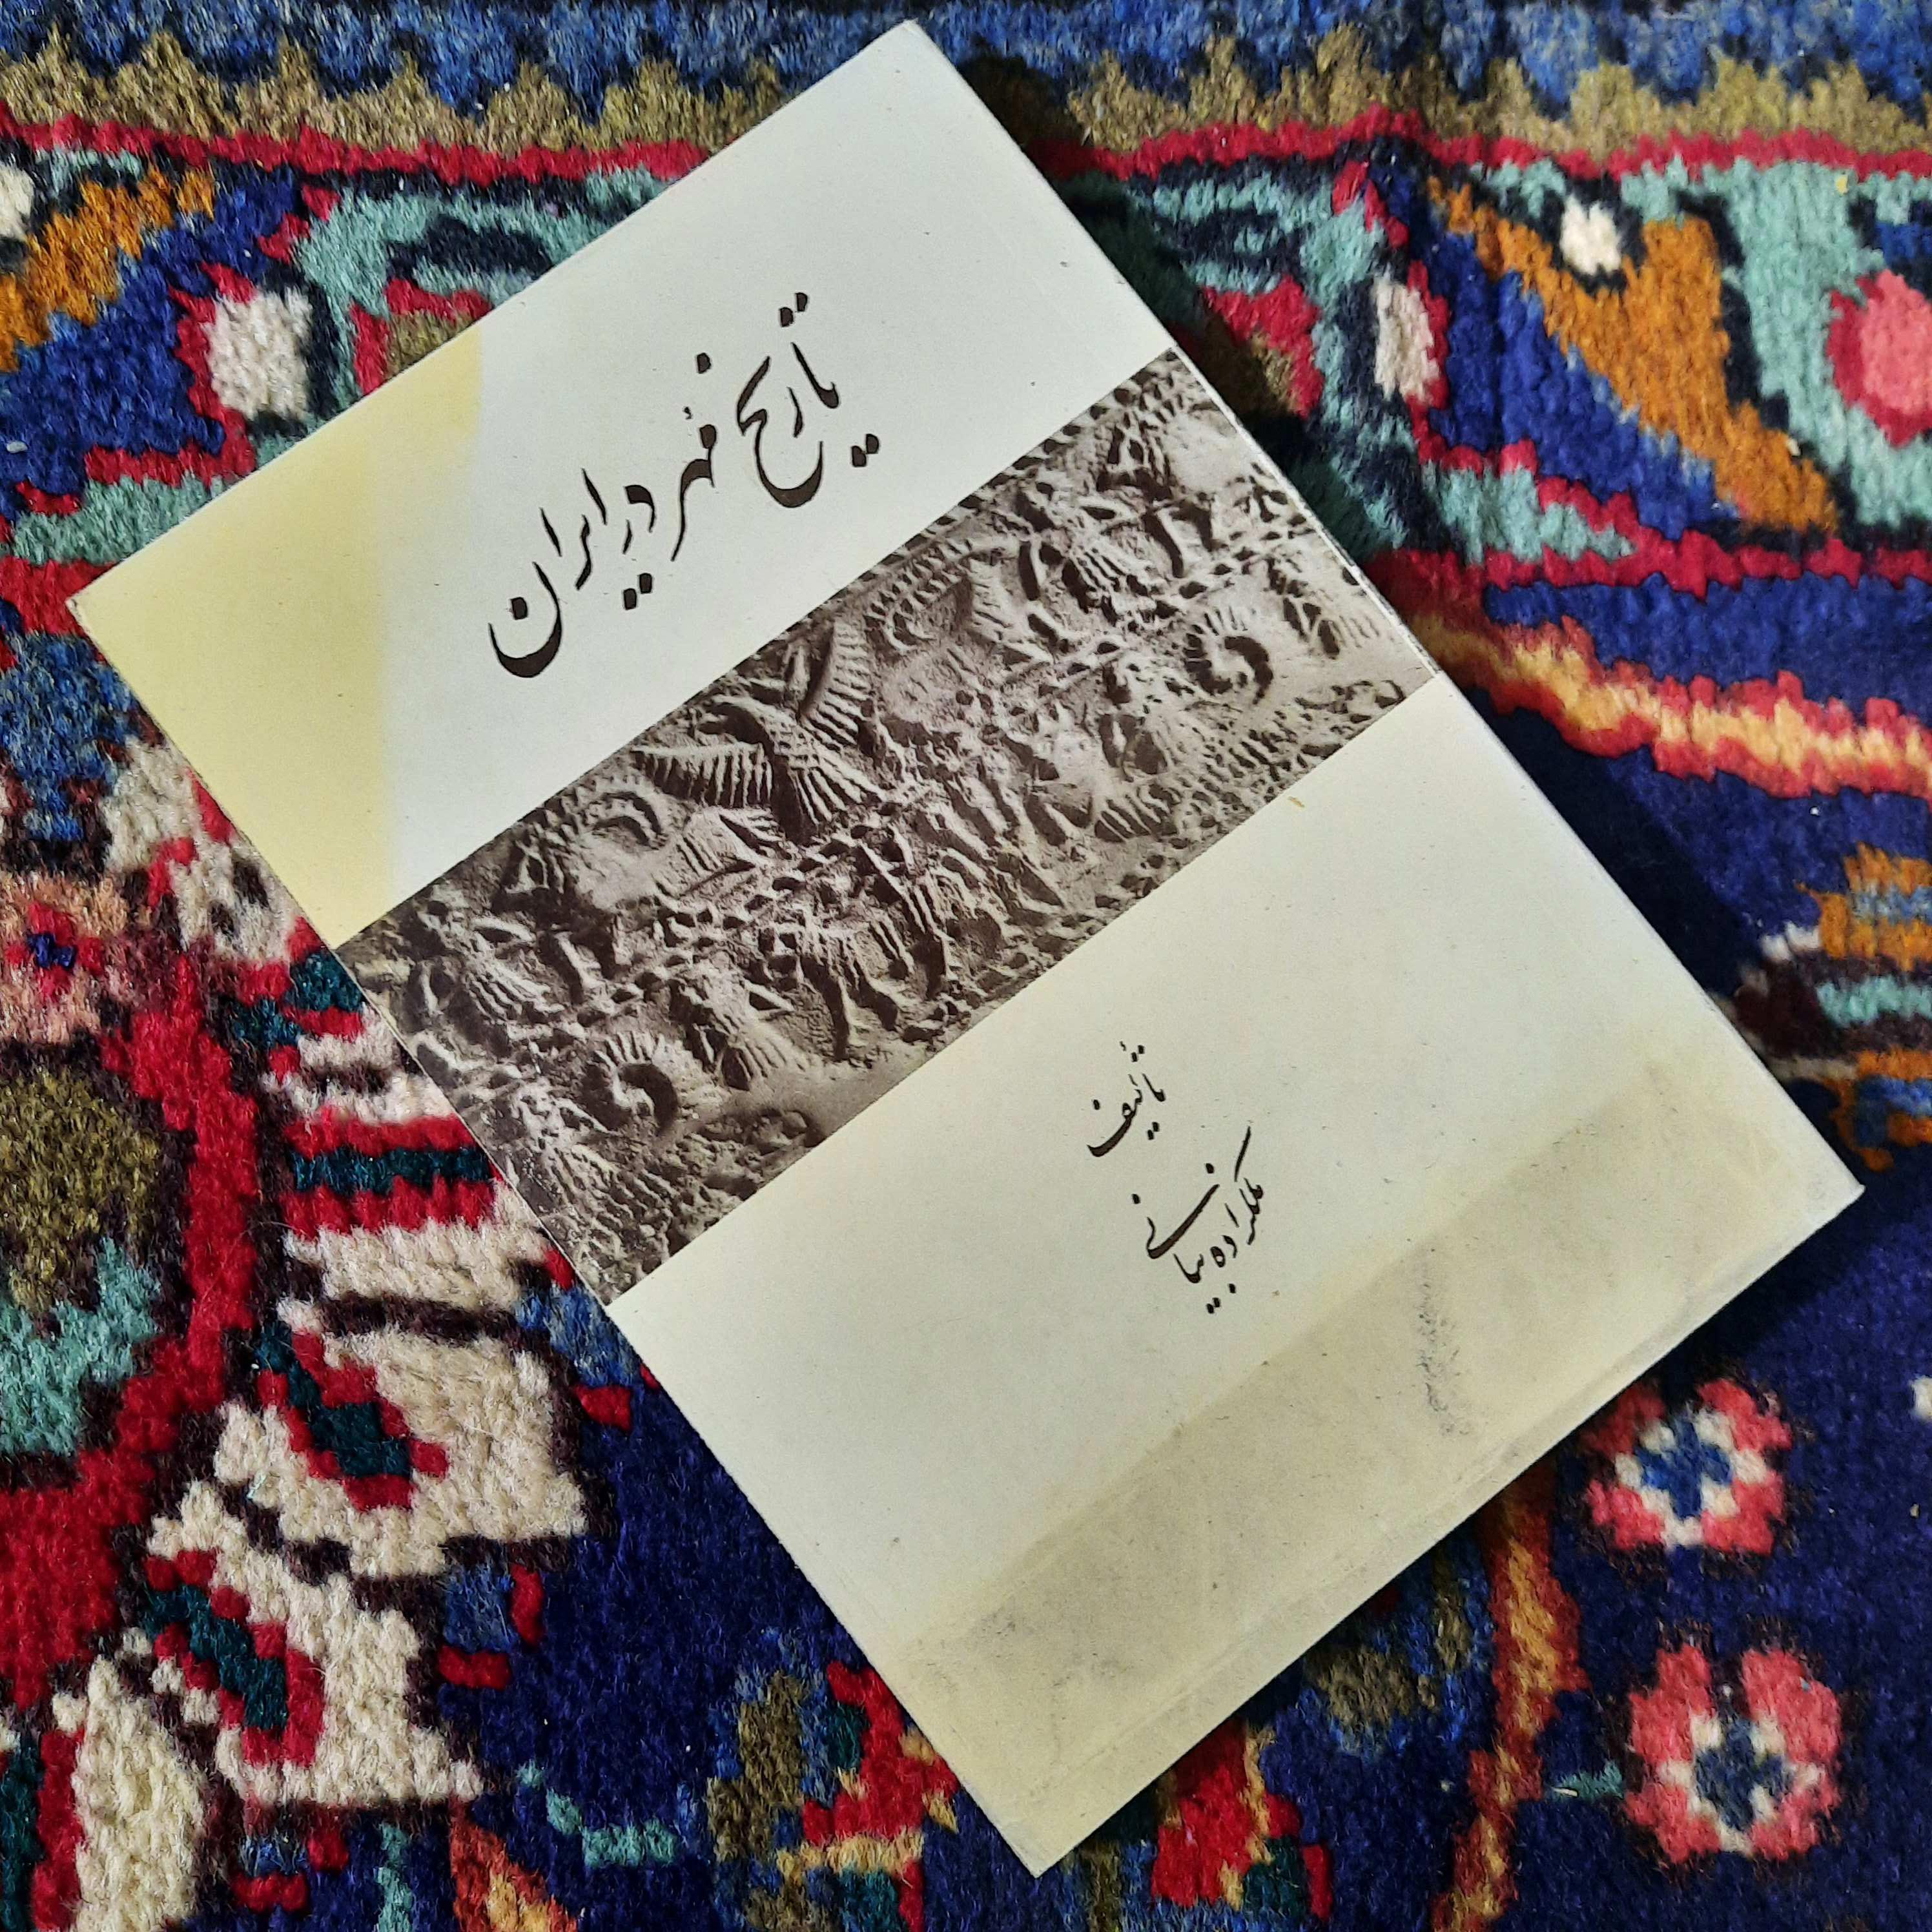 تاریخ مُهر در ایران
تألیف
ملکزاده بیانی